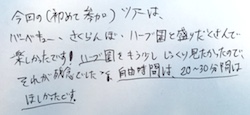 今回の(初めて参加)ツアーは、
バーベキュー、さくらんぼ、ハーブ園と盛りだくさんで
楽しかったです! ハーブ園をもう少しじっくり見たかったので、
それが残念でした。自由時間は20~30分間は
ほしかったです。